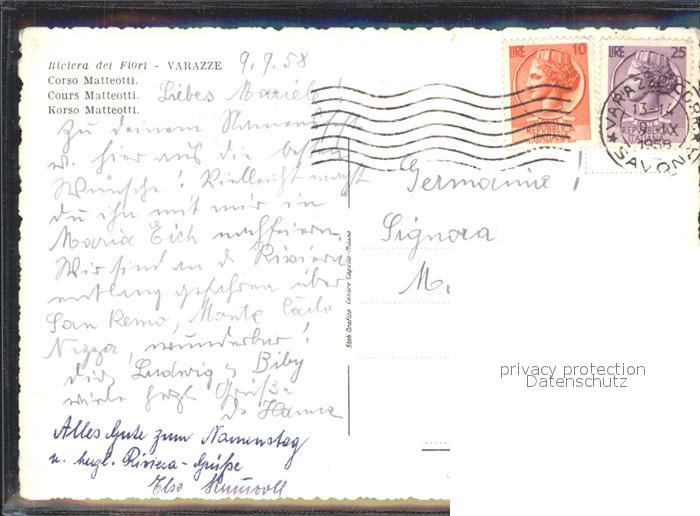 Riviera dei Fiori - VARAZZE
Corso Matteotti.
Cours Matteotti.
Korso Matteotti.
9.9.58
Liebes Mariele!
Zu deinem Namensfest
w. hier aus die besten
Wünsche! Vielleicht magst
du ihn mit mir in
Maria Eich nachfeiern.
Wir sind an d. Riviera
entlang gefahren über
San Remo, Monte Carlo
Nizza, wunderbar!
Ludwig & Biby
viele herzl. Grüße
Hanna
Alles Gute zum Namenstag
u. herzl. Riviera-Grüße
Else
Stab. Grafico Cesare Capello - Milano
LIRE 10
REPVBBLICA
ITALIANA
LIRE 25
REPVBBLICA
ITALIANA
VARAZZE
13-14
9 IX
1958
SAVONA
Germania!
Signora
M.
privacy protection
Datenschutz